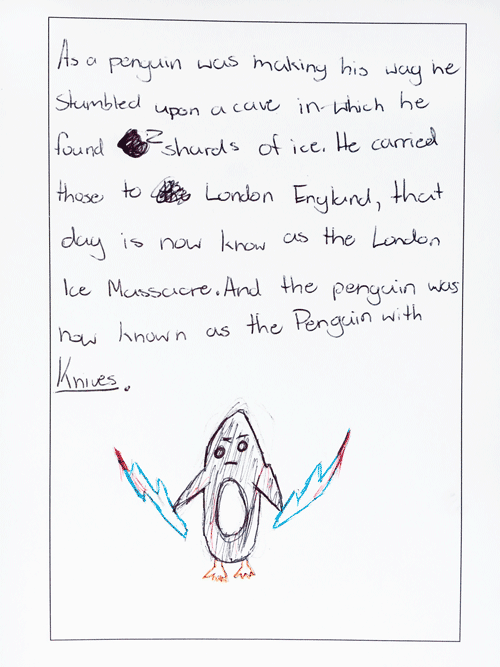 As a penguin was making his way he
stumbled upon a cave in which he
found 2 shards of ice. He carried
those to London England, that
day is now know as the London
Ice Massacre. And the penguin was
now known as the Penguin with
Knives.